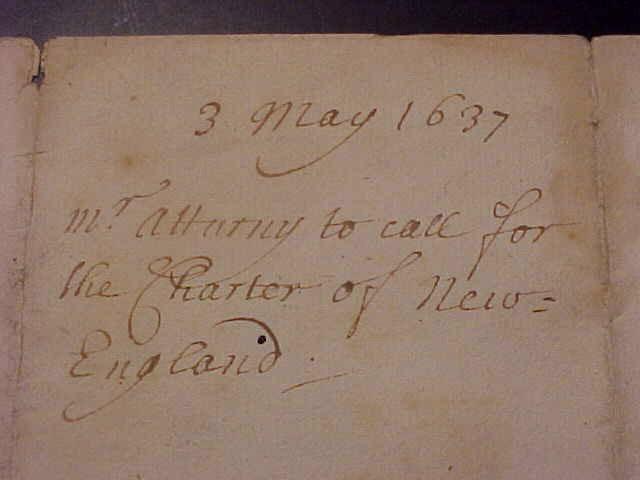 3 May 1637
mr Atturny to call for
the Charter of New=
England.